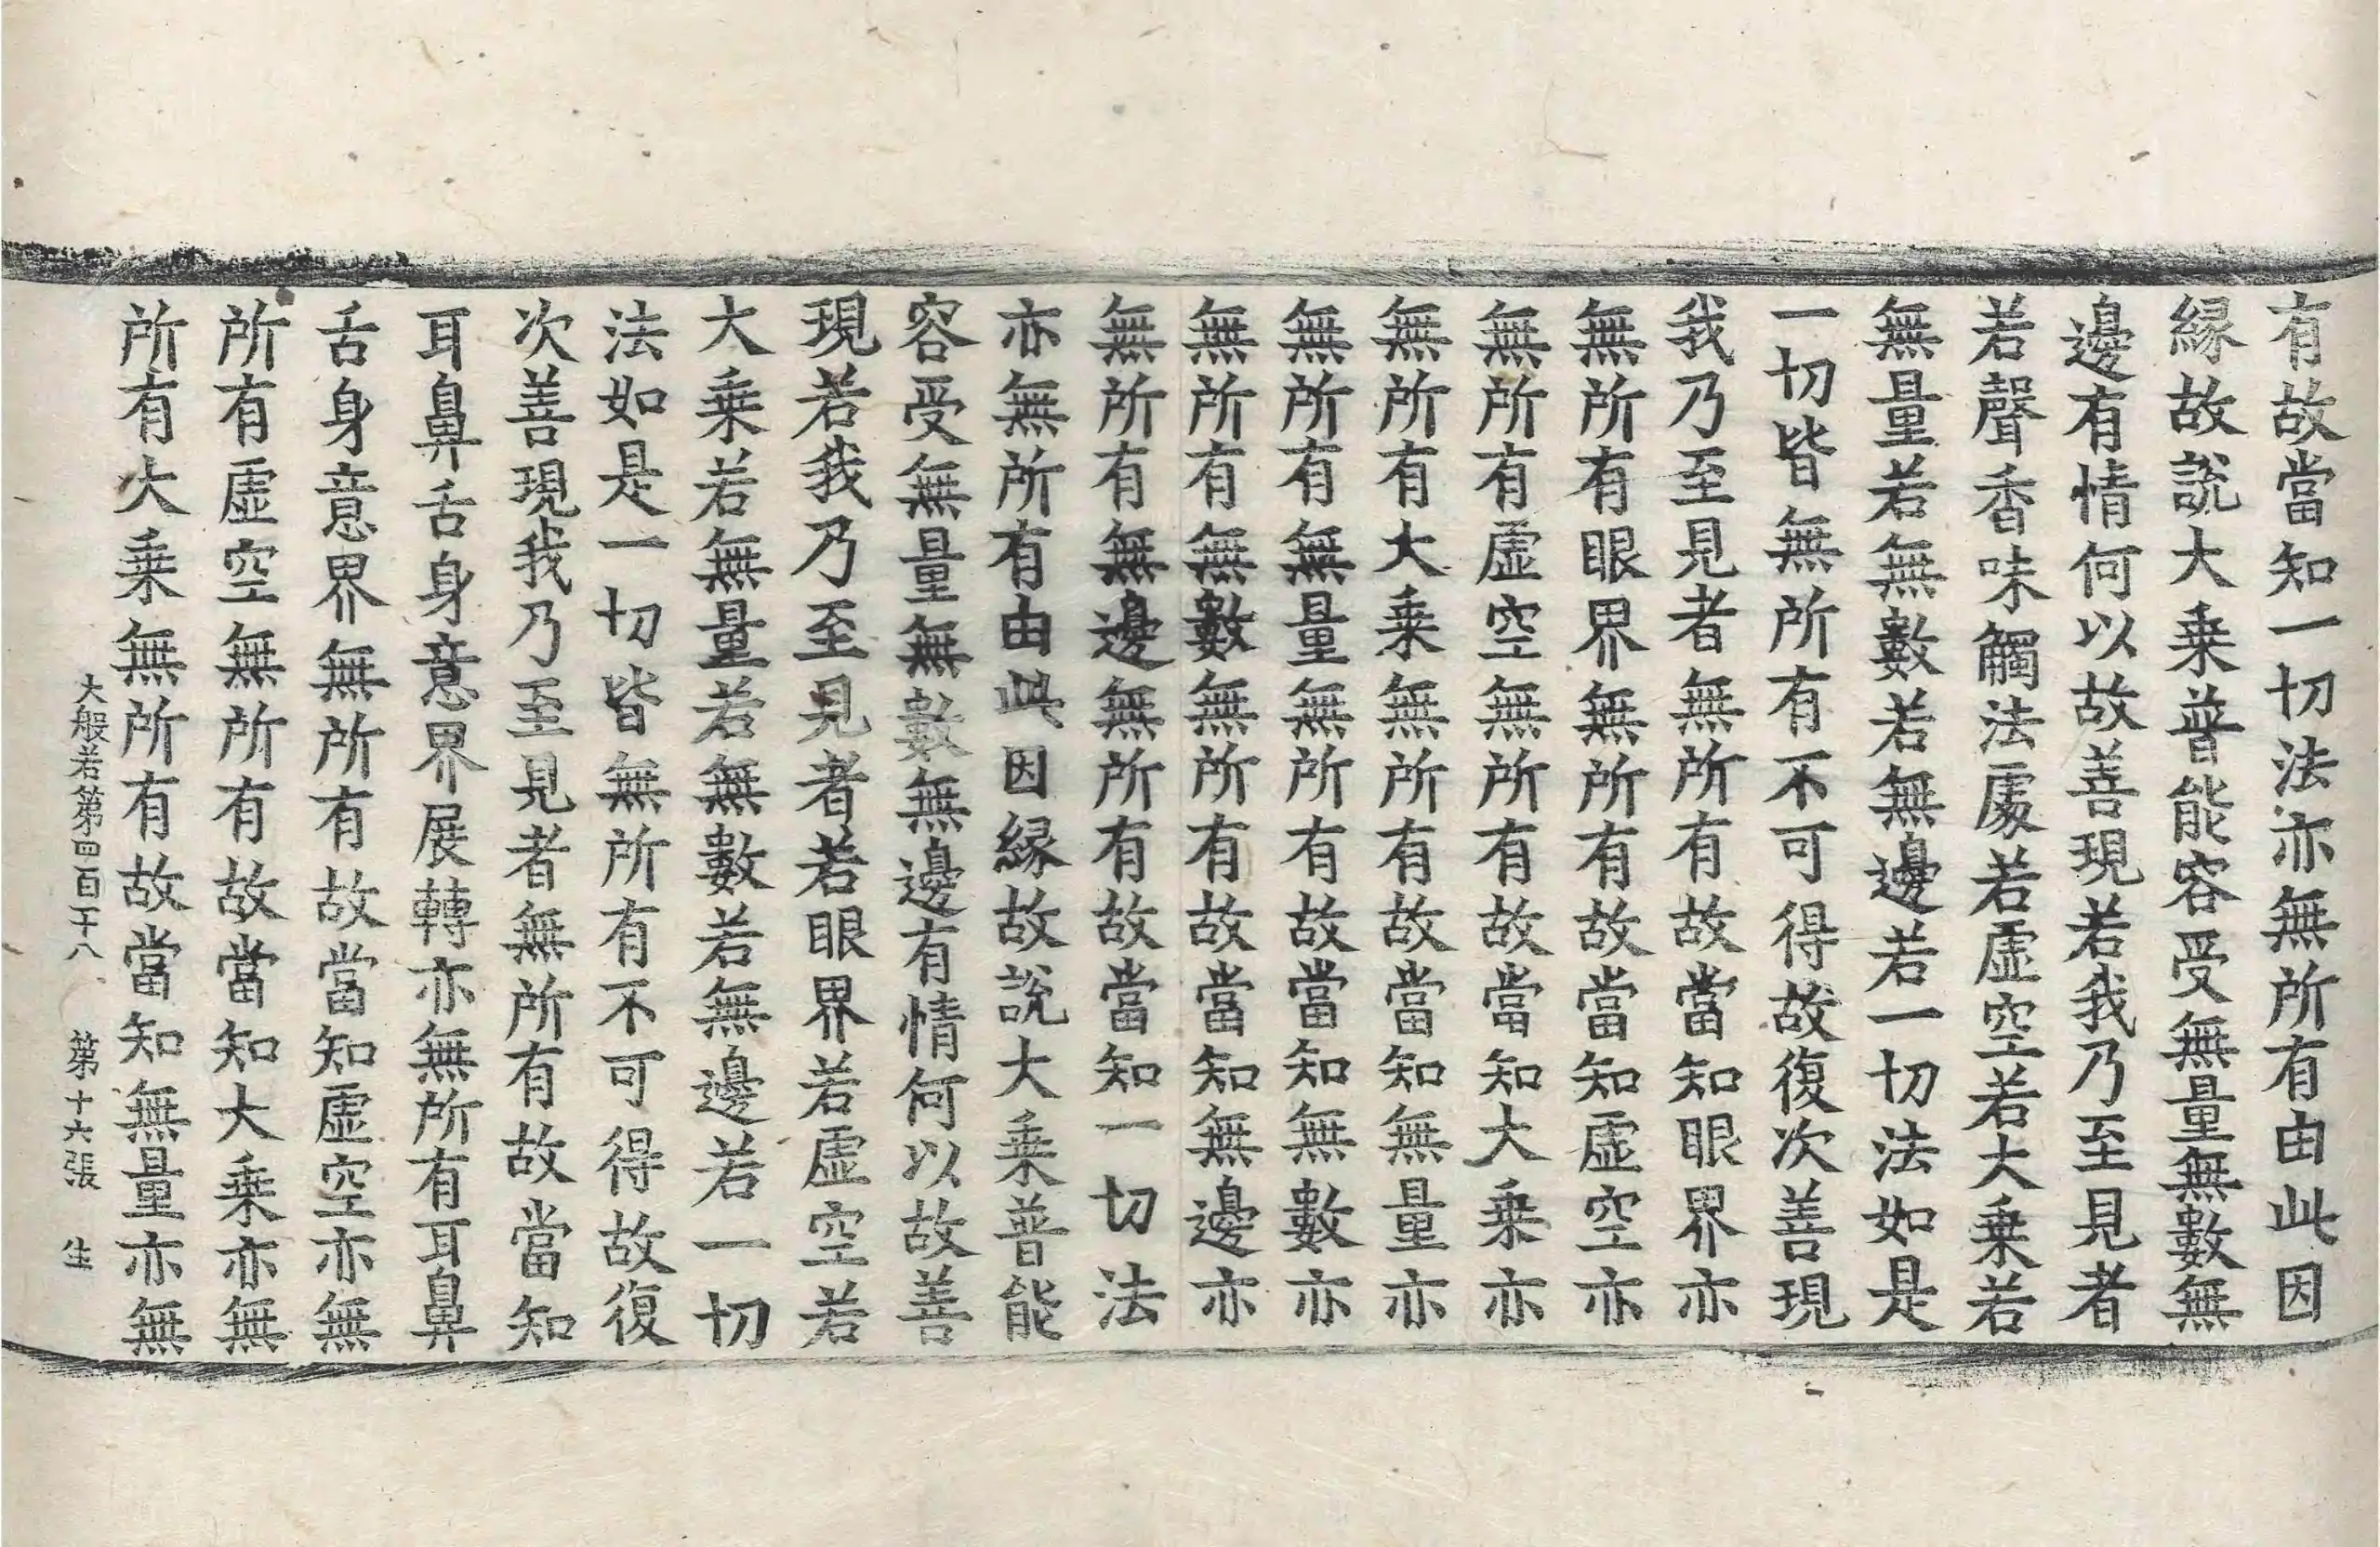 有故當知一切法亦無所有由此因
緣故說大乗普能容受無量無數無
邊有情何以故善現若我乃至見者
若聲香味觸法處若虛空若大乗若
無量若無數若無邊若一切法如是
一切皆無所有不可得故復次善現
我乃至見者無所有故當知眼界亦
無所有眼界無所有故當知虛空亦
無所有虛空無所有故當知大乗亦
無所有大乗無所有故當知無量亦
無所有無量無所有故當知無數亦
無所有無數無所有故當知無邊亦
無所有無邊無所有故當知一切法
亦無所有由此因緣故說大乗普能
容受無量無數無邊有情何以故善
現若我乃至見者若眼界若虛空若
大乗若無量若無數若無邊若一切
法如是一切皆無所有不可得故復
次善現我乃至見者無所有故當知
耳鼻舌身意界展轉亦無所有耳鼻
舌身意界無所有故當知虛空亦無
所有虛空無所有故當知大乗亦無
所有大乗無所有故當知無量亦無
大般若第四百十八 第十六張 生